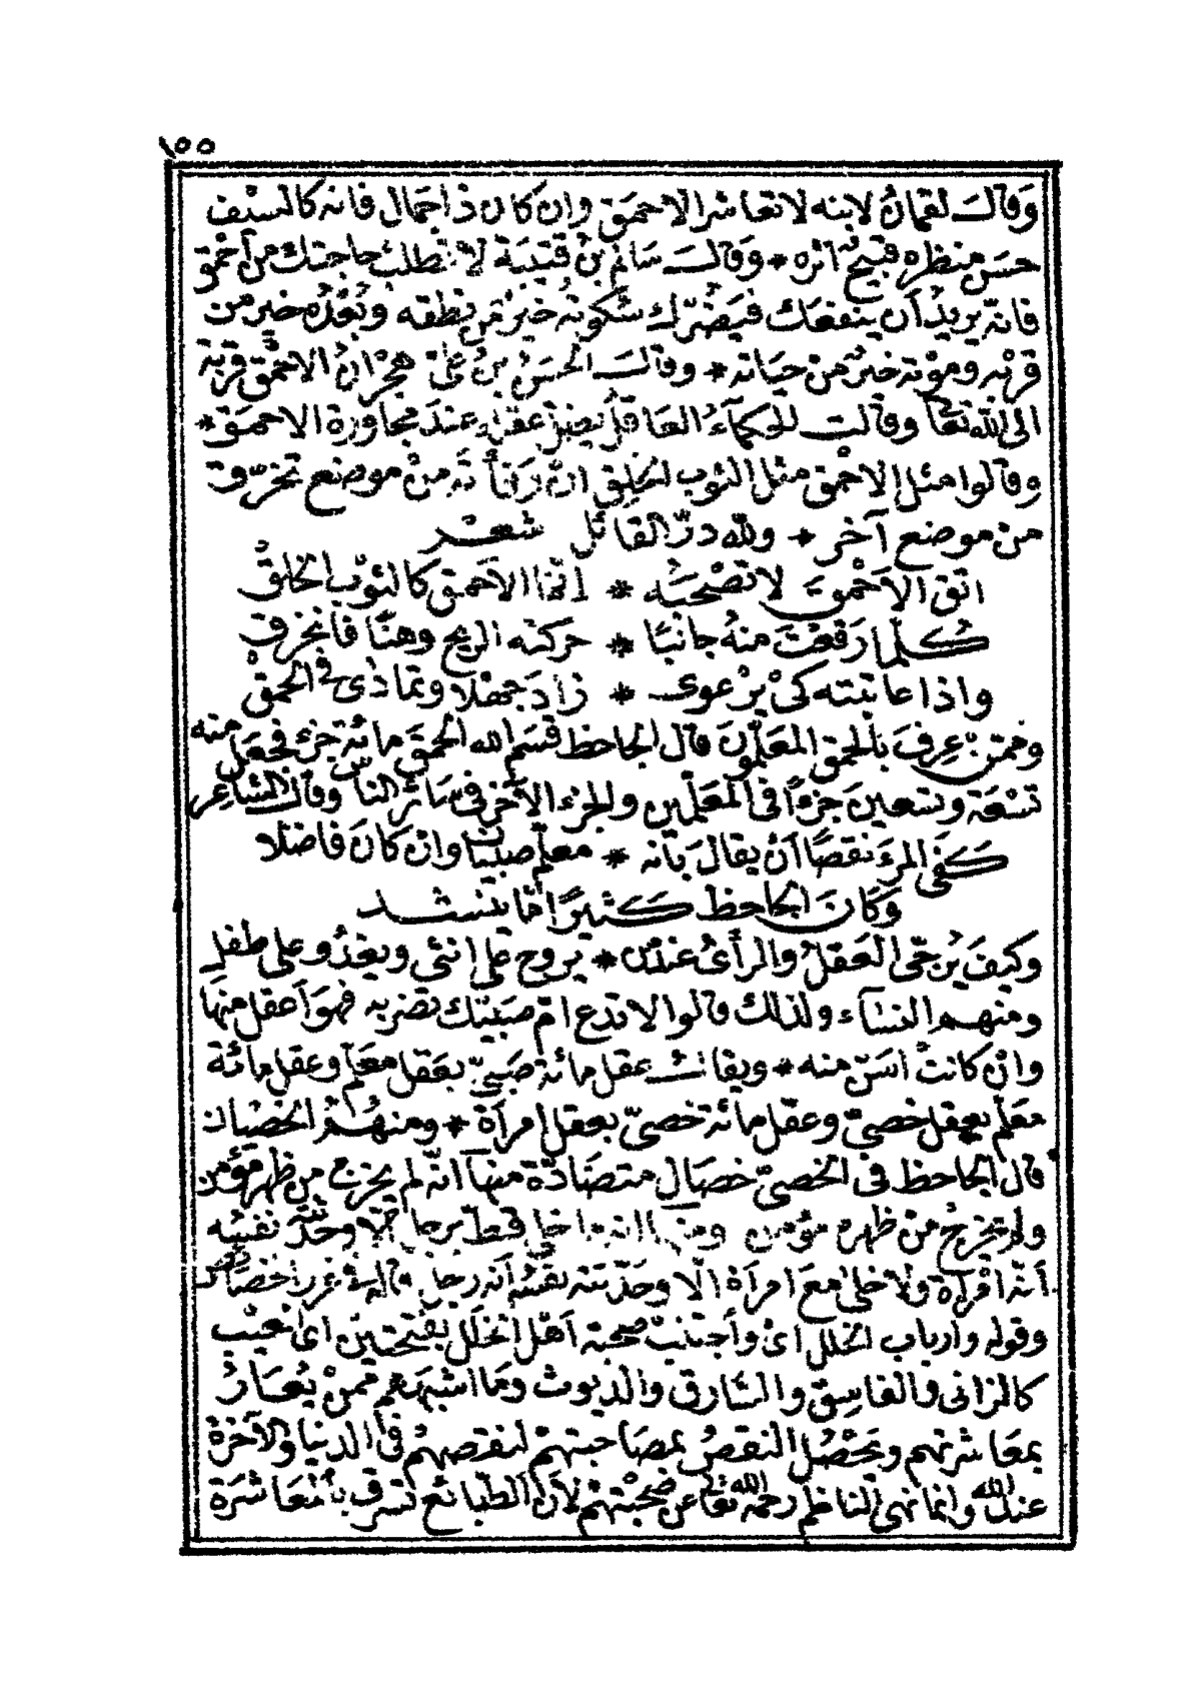 ١٥٥
وَقَالَ لقمانُ لابنه لا تعاشر الاحمق وان كان ذا جمال فانه كالسيف
حسَن منظره قبيح اثره * وَقَالَ سَالم بن قتيبَة لا تطلب حاجتك من احْمَق
فانه يريد أن ينفعَك فيَضُرّك سُكوتهُ خيرٌ من نطقه وبُعْدُه خير من
قربه وموْته خيرٌ من حيَاته * وقال الحسَنُ بنُ علىّ هجْرَانُ الاحمَق قربَة
الى الله تعَالى وقالت الحكمآءُ العَاقل يضِلّ عقله عندَ مجاورة الاحمَق *
وقالوا مثل الاحْمق مثل الثوب الخلِق ان رَفأْ تَه مِنْ موضع تخرّق
من موضع آخر * ولله درّ القَائل شعر
اتق الاحْمقَ لا تصْحَبَه * انما الاحْمق كالثوْب الخلقْ
كُلّما رَقعْتَ منهُ جانبًا * حركته الريح وهنًا فانخرقْ
واذا عاتبته كىْ يرْعوى * زادَ جهْلا وتمادَى فى الحمقْ
وممن عرِفَ بالحمق المعَلّمونَ قال الجاحظ قسَم الله الحمقَ مائة جزء فجعَل منه
تسْعَة وتسعينَ جزءًا فى المعَلّمين والجزء الآخر فى سَائر الناس وقال الشاعر
كفى المرءَ نقصًا أنْ يقالَ بأنه * معلم صبيَان وان كانَ فاضلا
وَكَانَ الجاحظ كثيرًا مَا ينشد
وكيفَ يُرجّى العَقلُ والرأىُ عندَ من * يروح على انثى ويغدُو على طفل
ومنهم النسَاء ولذلك قالوا لا تدع امّ صَبيّك تضربه فهوَ أعقل منهَا
وانْ كانتْ اسَنّ منه * ويقال عقل مائة صَبىّ بعَقل معَلم وعقل مائة
معَلم بعقل خصىّ وعقل مائة خصىّ بعقل امرأة * ومنهُمْ الخصيان
قال الجاحظ فى الخصىّ خصَال متضَادّة منهَا انّه لم يخرج من ظهر مؤْمن
ولم يخرجْ من ظهره مؤمن ومنها انه ما خلا قط برجل الّا وحدّثته نفسُه
أنّه امْرأة ولا خلى معَ امرأة الّا وحَدّثته نفسُه أنه رجل
وقوله وأرباب الخلل اىْ وأجتنبْ صحبَة أهل الخلَل بفتحتين اى عيْب
كالزانى والفاسِق والسَّارق والديوث وما اشبهَهم ممنْ يُعَارُ
بمعَاشرتهم ويَحْصُل النقصُ بمصَاحبتهمْ لنقصهمْ فى الدنيا والآخرة
عند الله وانما نهى الناظم رحمه الله تعالى عن صُحْبتهمْ لأنّ الطّبائع تسْرق بالمعَاشرَة